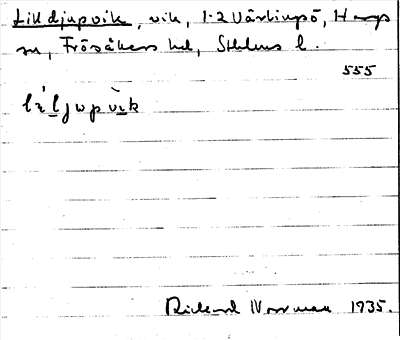 Lilldjupvik, vik, 1-2 Vårlinspö, Hargs
sn, Frösåkers hd, Sthlms l.
555
líljupvìk
Rickard Norrman 1935.